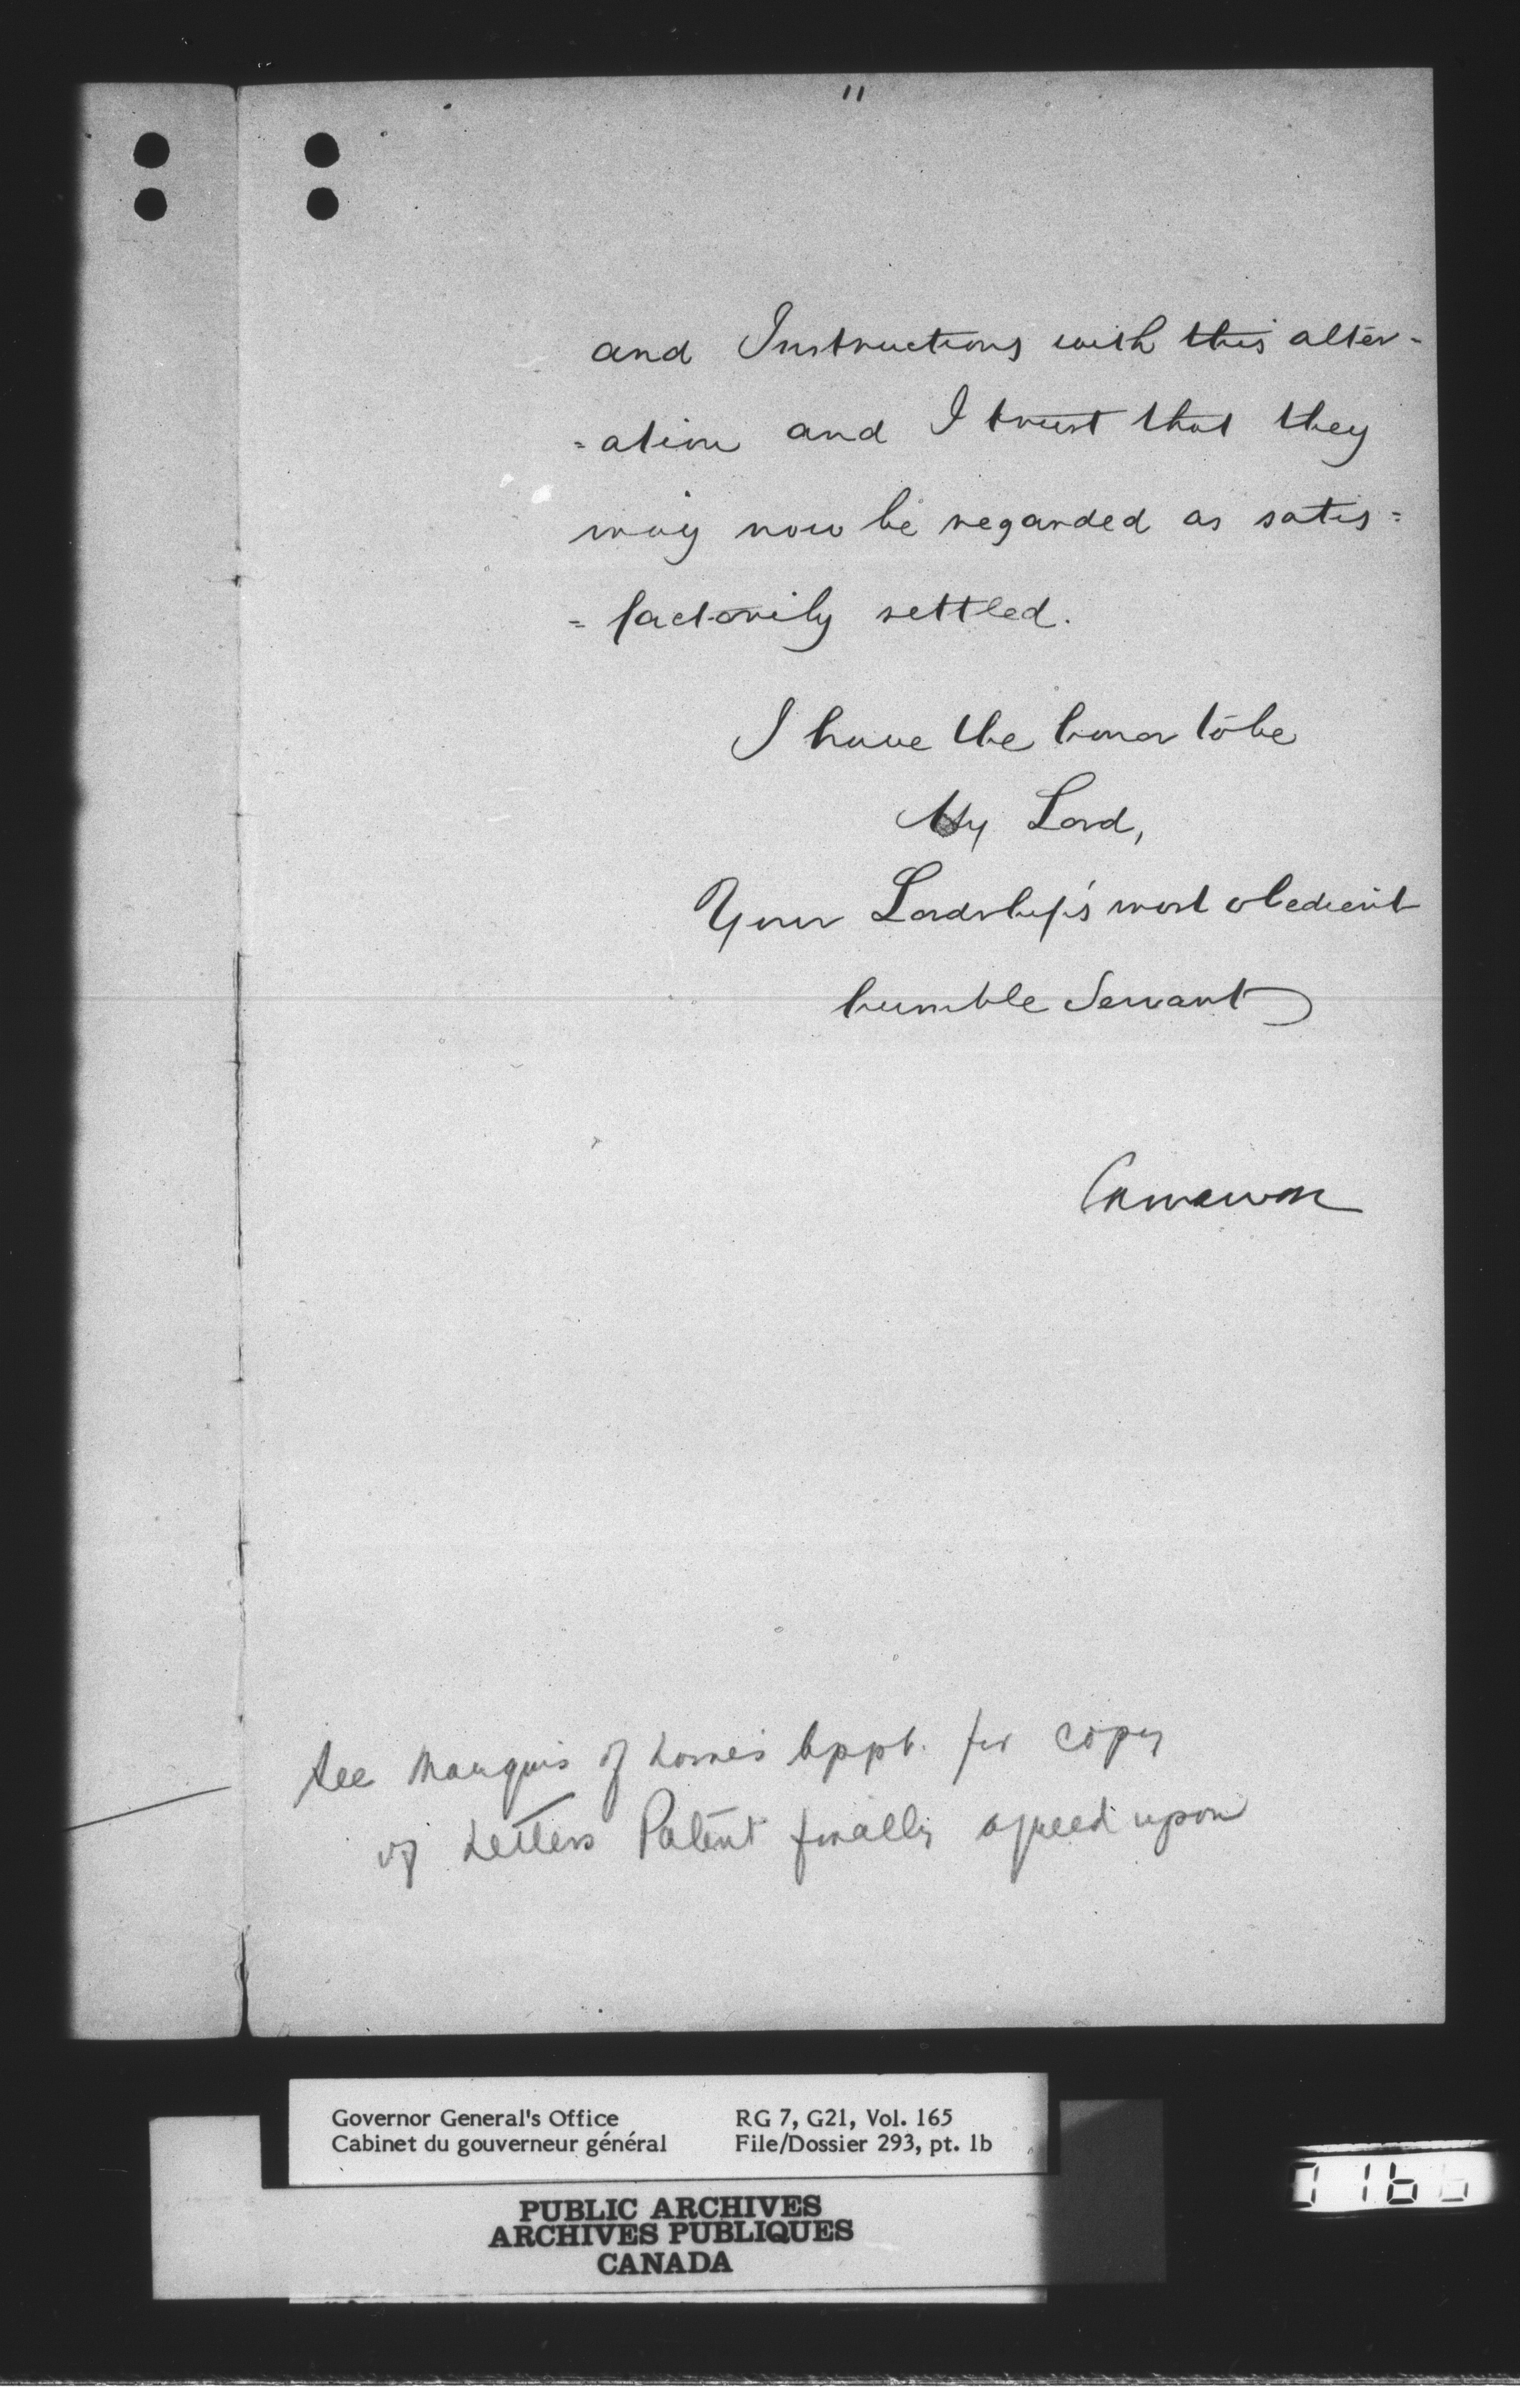 11
and Instructions with this alter-
=ation and I trust that they
may now be regarded as satis=
=factorily settled.
I have the honor to be
My Lord,
Your Lordship's most obedient
humble Servant
Carnarvon
See Marquis of Lorne's Appt. for copy
of Letters Patent finally agreed upon
Governor General's Office RG 7, G21, Vol. 165
Cabinet du gouverneur général File/Dossier 293, pt. 1b
PUBLIC ARCHIVES
ARCHIVES PUBLIQUES
CANADA